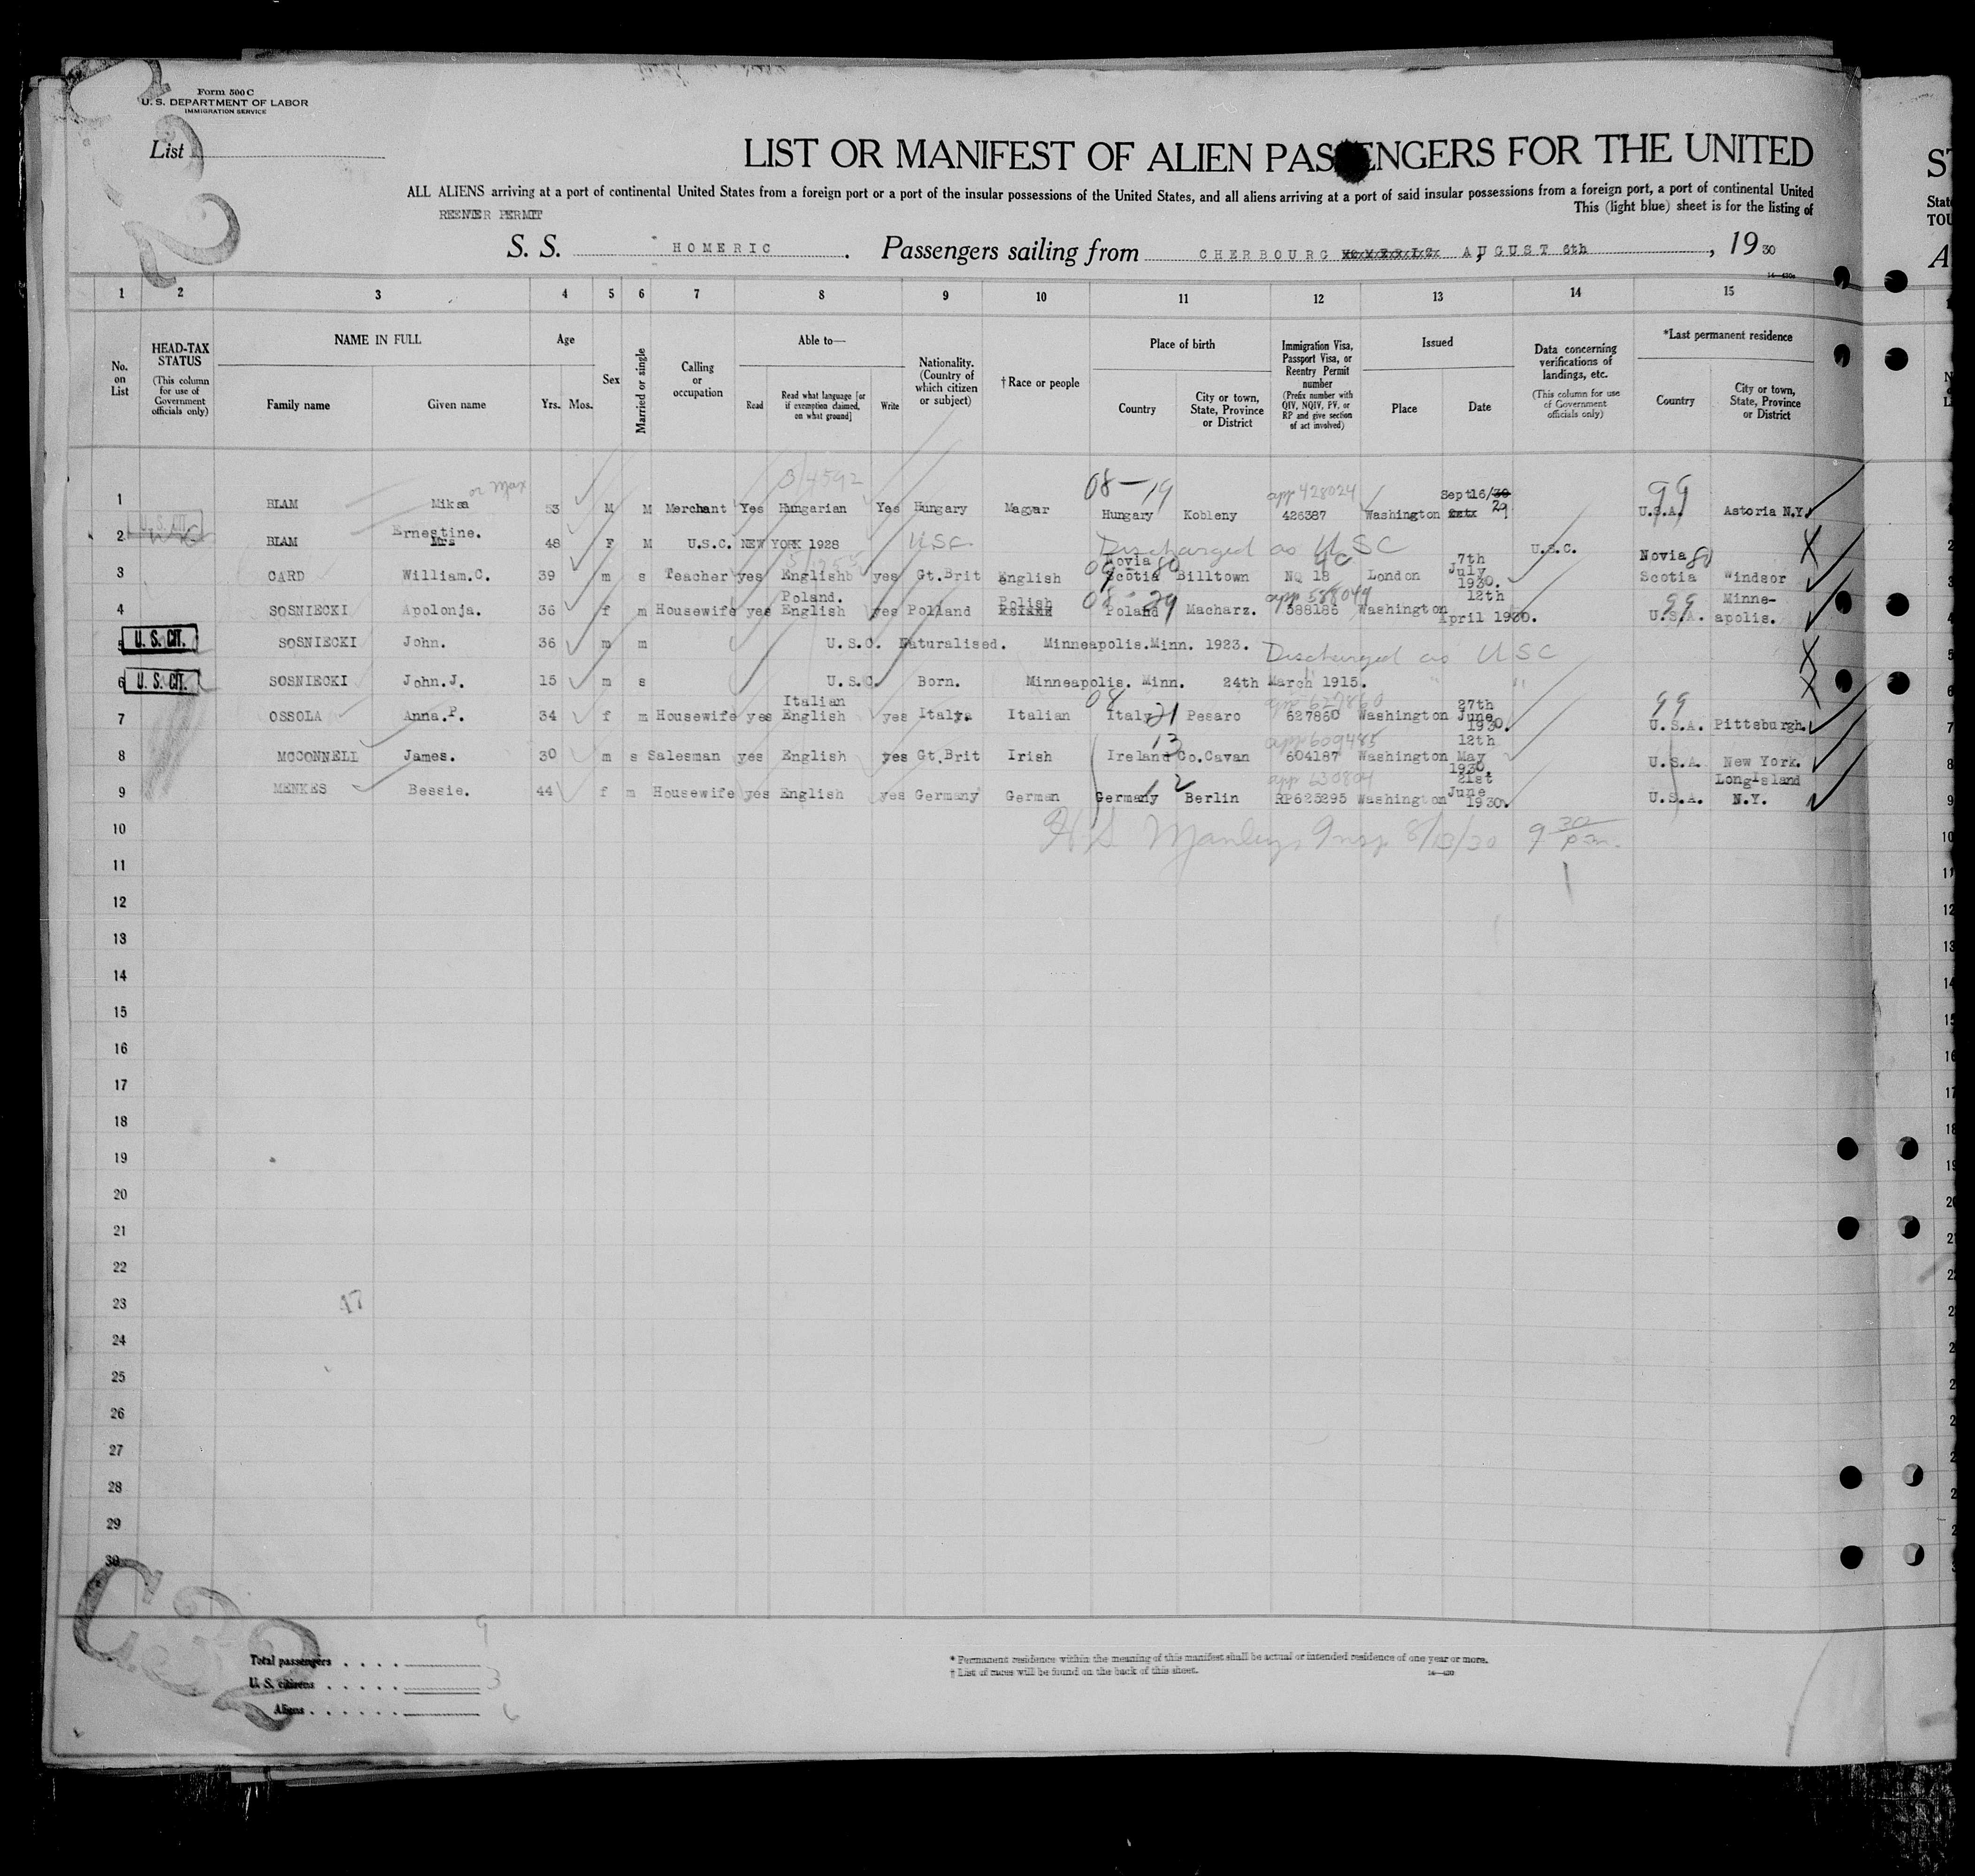 Form 500 C
U. S. DEPARTMENT OF LABOR
IMMIGRATION SERVICE
List
LIST OR MANIFEST OF ALIEN PASSENGERS FOR THE UNITED
ALL ALIENS arriving at a port of continental United States from a foreign port or a port of the insular possessions of the United States, and all aliens arriving at a port of said insular possessions from a foreign port, a port of continental United
REENTER PERMIT
This (light blue) sheet is for the listing of
S. S. HOMERIC. Passengers sailing from CHERBOURG, AUGUST 6th, 1930
1 2 3 4 5 6 7 8 9 10 11 12 13 14 15
No. on List
HEAD-TAX STATUS (This column for use of Government officials only)
NAME IN FULL
Family name Given name
Age
Yrs. Mos.
Sex
Married or single
Calling or occupation
Able to—
Read Read what language [or if exemption claimed, on what ground] Write
Nationality. (Country of which citizen or subject)
†Race or people
Place of birth
Country City or town, State, Province or District
Immigration Visa, Passport Visa, or Reentry Permit number (Prefix number with QIV, NQIV, PV, or RP and give section of act involved)
Issued
Place Date
Data concerning verifications of landings, etc. (This column for use of Government officials only)
*Last permanent residence
Country City or town, State, Province or District
1 BLAM Miksa or Max 53 M M Merchant Yes Hungarian Yes Hungary Magyar 08-19 Hungary Kobleny app 428024 426387 Washington Sept 16/29 99 U.S.A. Astoria N.Y.
2 U.S. CIT. BLAM Ernestine. Mrs 48 F M U.S.C. NEW YORK 1928 USC Discharged as USC U.S.C.
3 CARD William.C. 39 m s Teacher yes English yes Gt.Brit English Novia Scotia Billtown NQ 18 4C London 7th July 1930. Novia Scotia Windsor
4 SOSNIECKI Apolonja. 36 f m Housewife yes Poland. English yes Polland Polish Poland Macharz. app 588049 588186 Washington 12th April 1930. 99 U.S.A. Minneapolis.
5 U. S. CIT. SOSNIECKI John. 36 m m U.S.C. Naturalised. Minneapolis.Minn. 1923. Discharged as USC
6 U. S. CIT. SOSNIECKI John.J. 15 m s U.S.C. Born. Minneapolis. Minn. 24th March 1915. " " "
7 OSSOLA Anna.P. 34 f m Housewife yes Italian English yes Italy Italian 08 21 Italy Pesaro app 627860 627860 Washington 27th June 1930. 99 U.S.A. Pittsburgh.
8 MCCONNELL James. 30 m s Salesman yes English yes Gt.Brit Irish 13 Ireland Co.Cavan app 609485 604187 Washington 12th May 1930. U.S.A. New York.
9 MENKES Bessie. 44 f m Housewife yes English yes Germany German 12 Germany Berlin app 630804 RP625295 Washington 21st June 1930. U.S.A. LongIsland N.Y.
10 H.S. Manley, Insp 8/13/30 9 30 pm.
11
12
13
14
15
16
17
18
19
20
21
22
23
24
25
26
27
28
29
30
Total passengers . . . . 9
U. S. citizens . . . . . 3
Aliens . . . . . . 6
* Permanent residence within the meaning of this manifest shall be actual or intended residence of one year or more.
† List of races will be found on the back of this sheet.